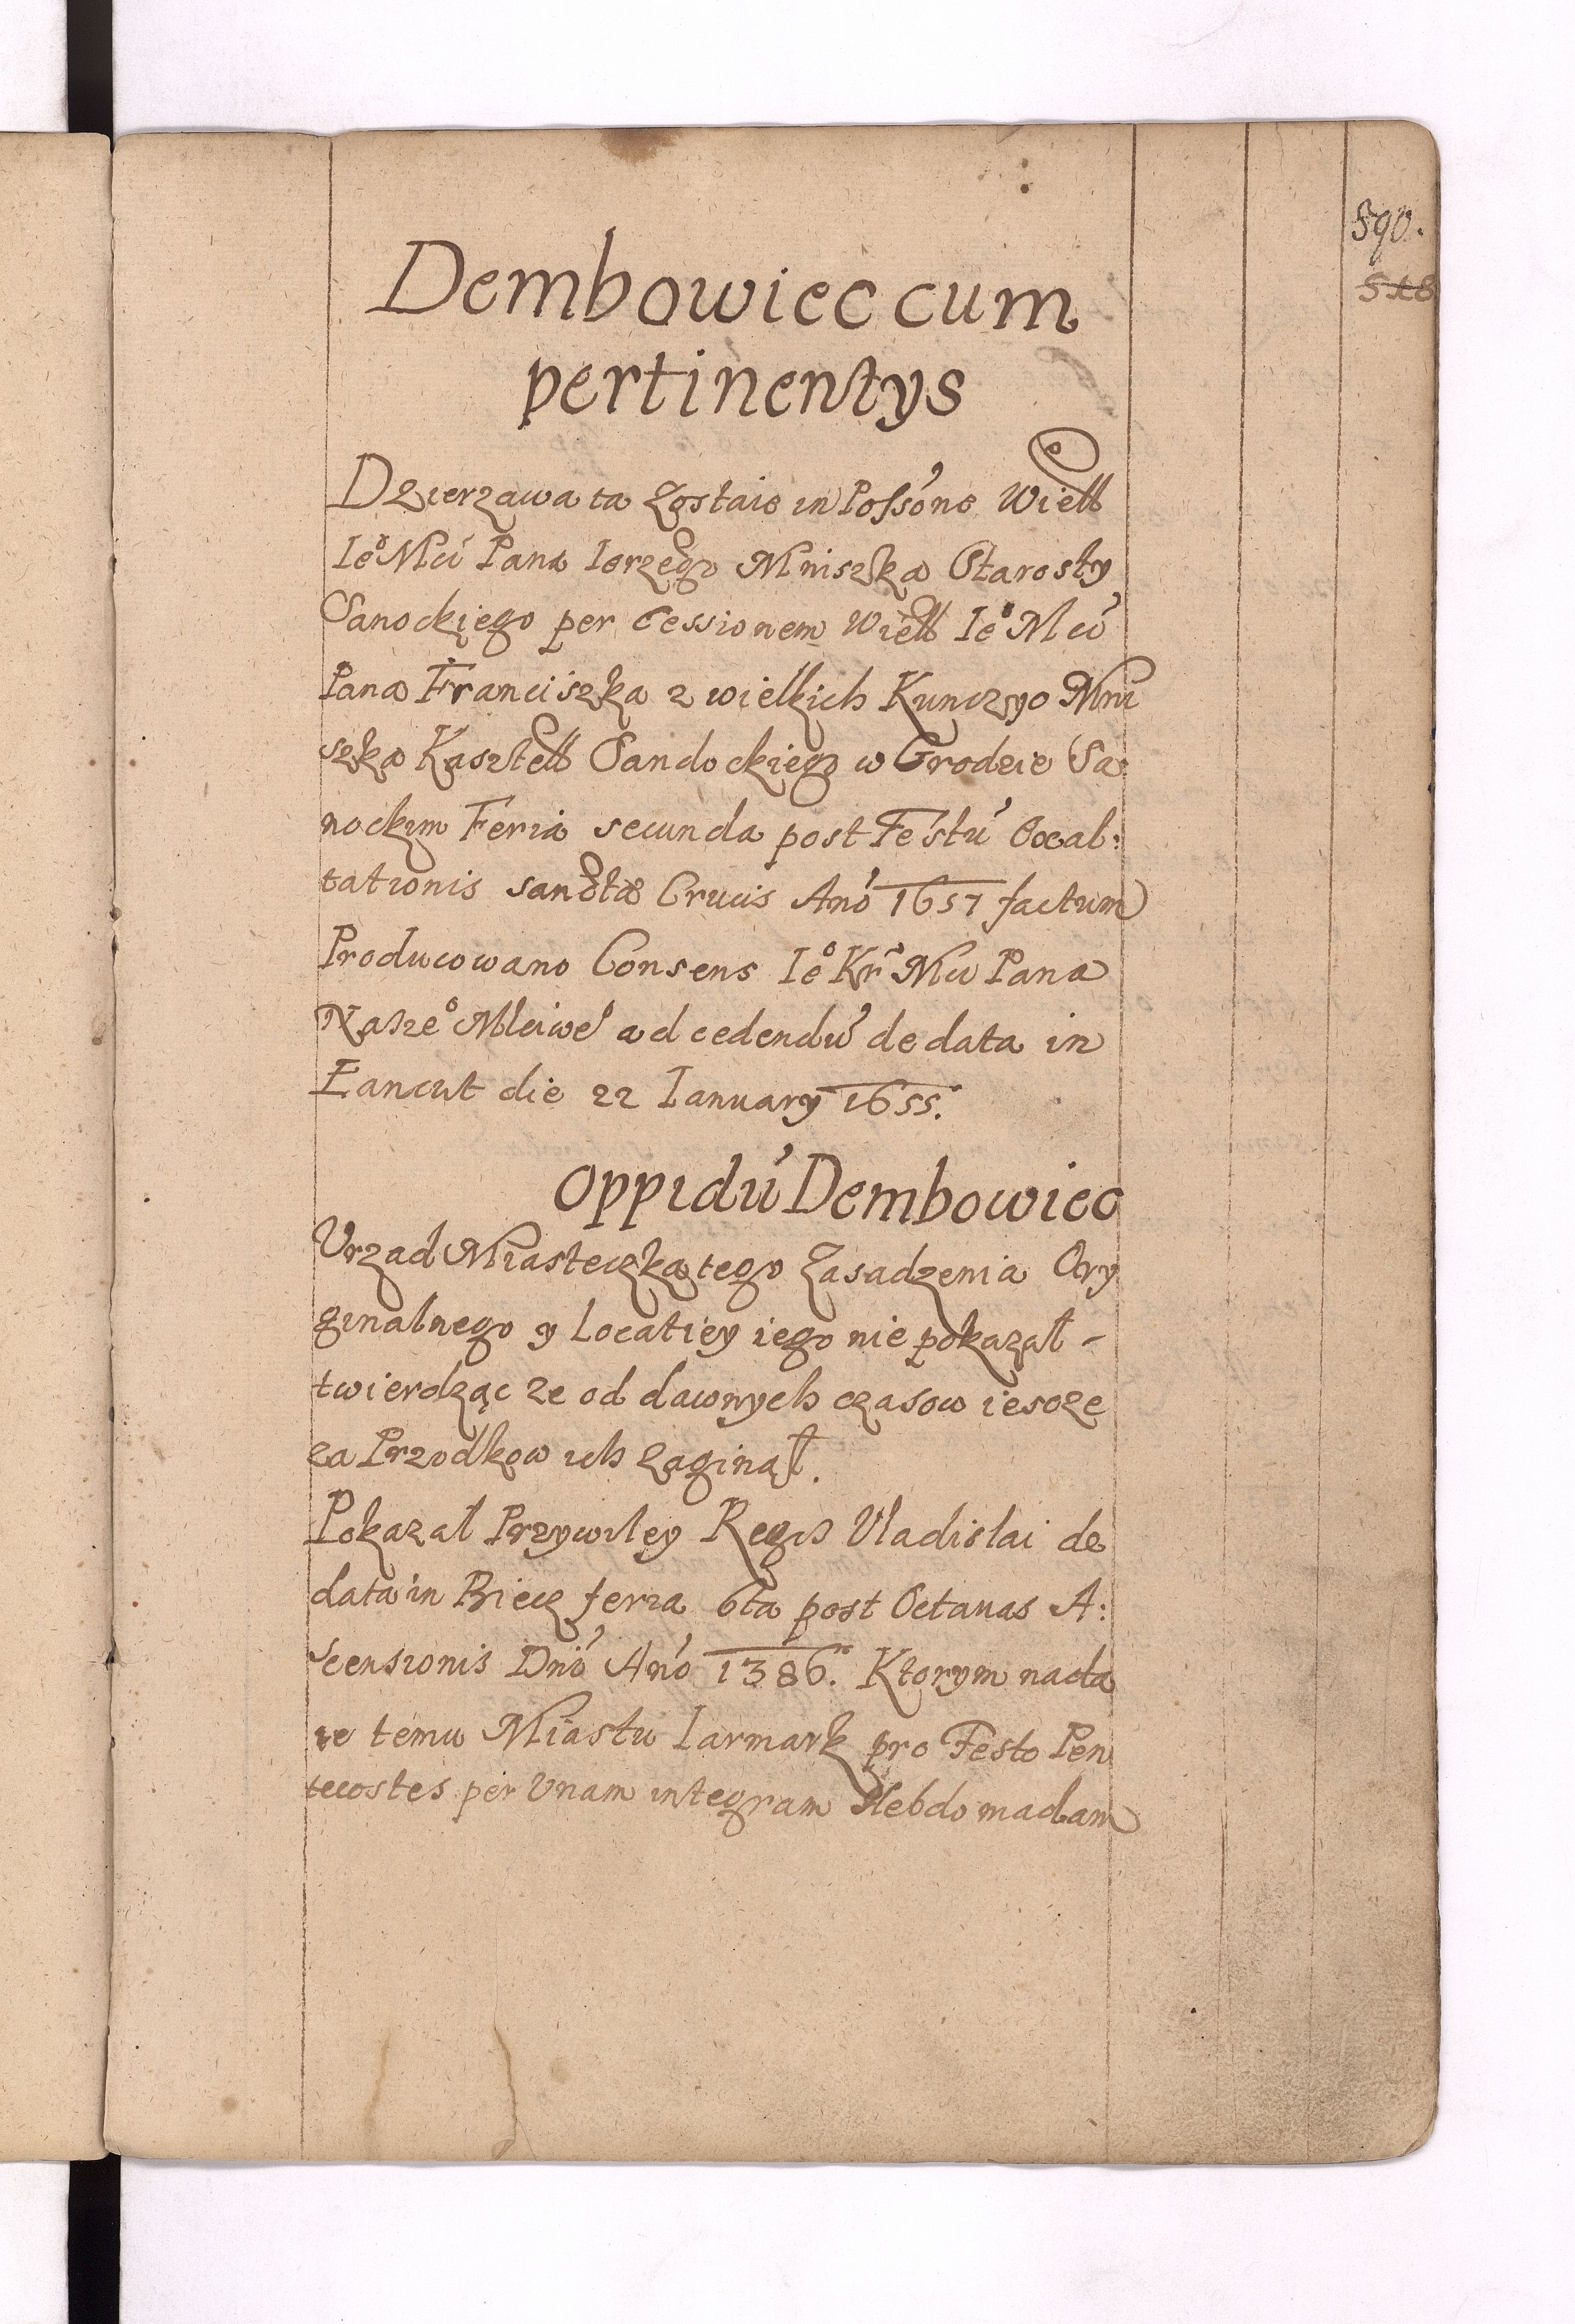 590.
518
Dembowiec cum
pertinentys
Dzierzawa ta zostaie in Posśone Wiell
Ie⁰ Mci Pana Ierzego Mniszka Starosty
Sanockiego per Cessionem Wiell Ie⁰ Mci
Pana Franciszka z wielkich Kunczyc Mni
szka Kasztell Sandockiego w Grodzie Sa:
nockim Feria secunda post Festú Exal:
tationis sanctæ Crucis Anó 1657 factum
Producowano Consens Ie⁰ Kr Mci Pana
Nasze⁰ Mleiwe⁰ ad cedendú de data in
Łancut die 22 Ianuary 1655.
Oppidú Dembowiec
Vrzad Miasteczka tego Zasadzenia Ory
ginalnego y Locatiey iego nie pokazał -
twierdząc ze od dawnych czasow iescze
za Przodkow ich zaginął.
Pokazał Przywiley Regis Vladislai de
data in Biecz feria 6ta post Octauas A:
scensionis Dnó Anó 1386. Ktorym nada
ie temu Miastu Iarmark pro Festo Pen
tecostes per Vnam integram Hebdomadam